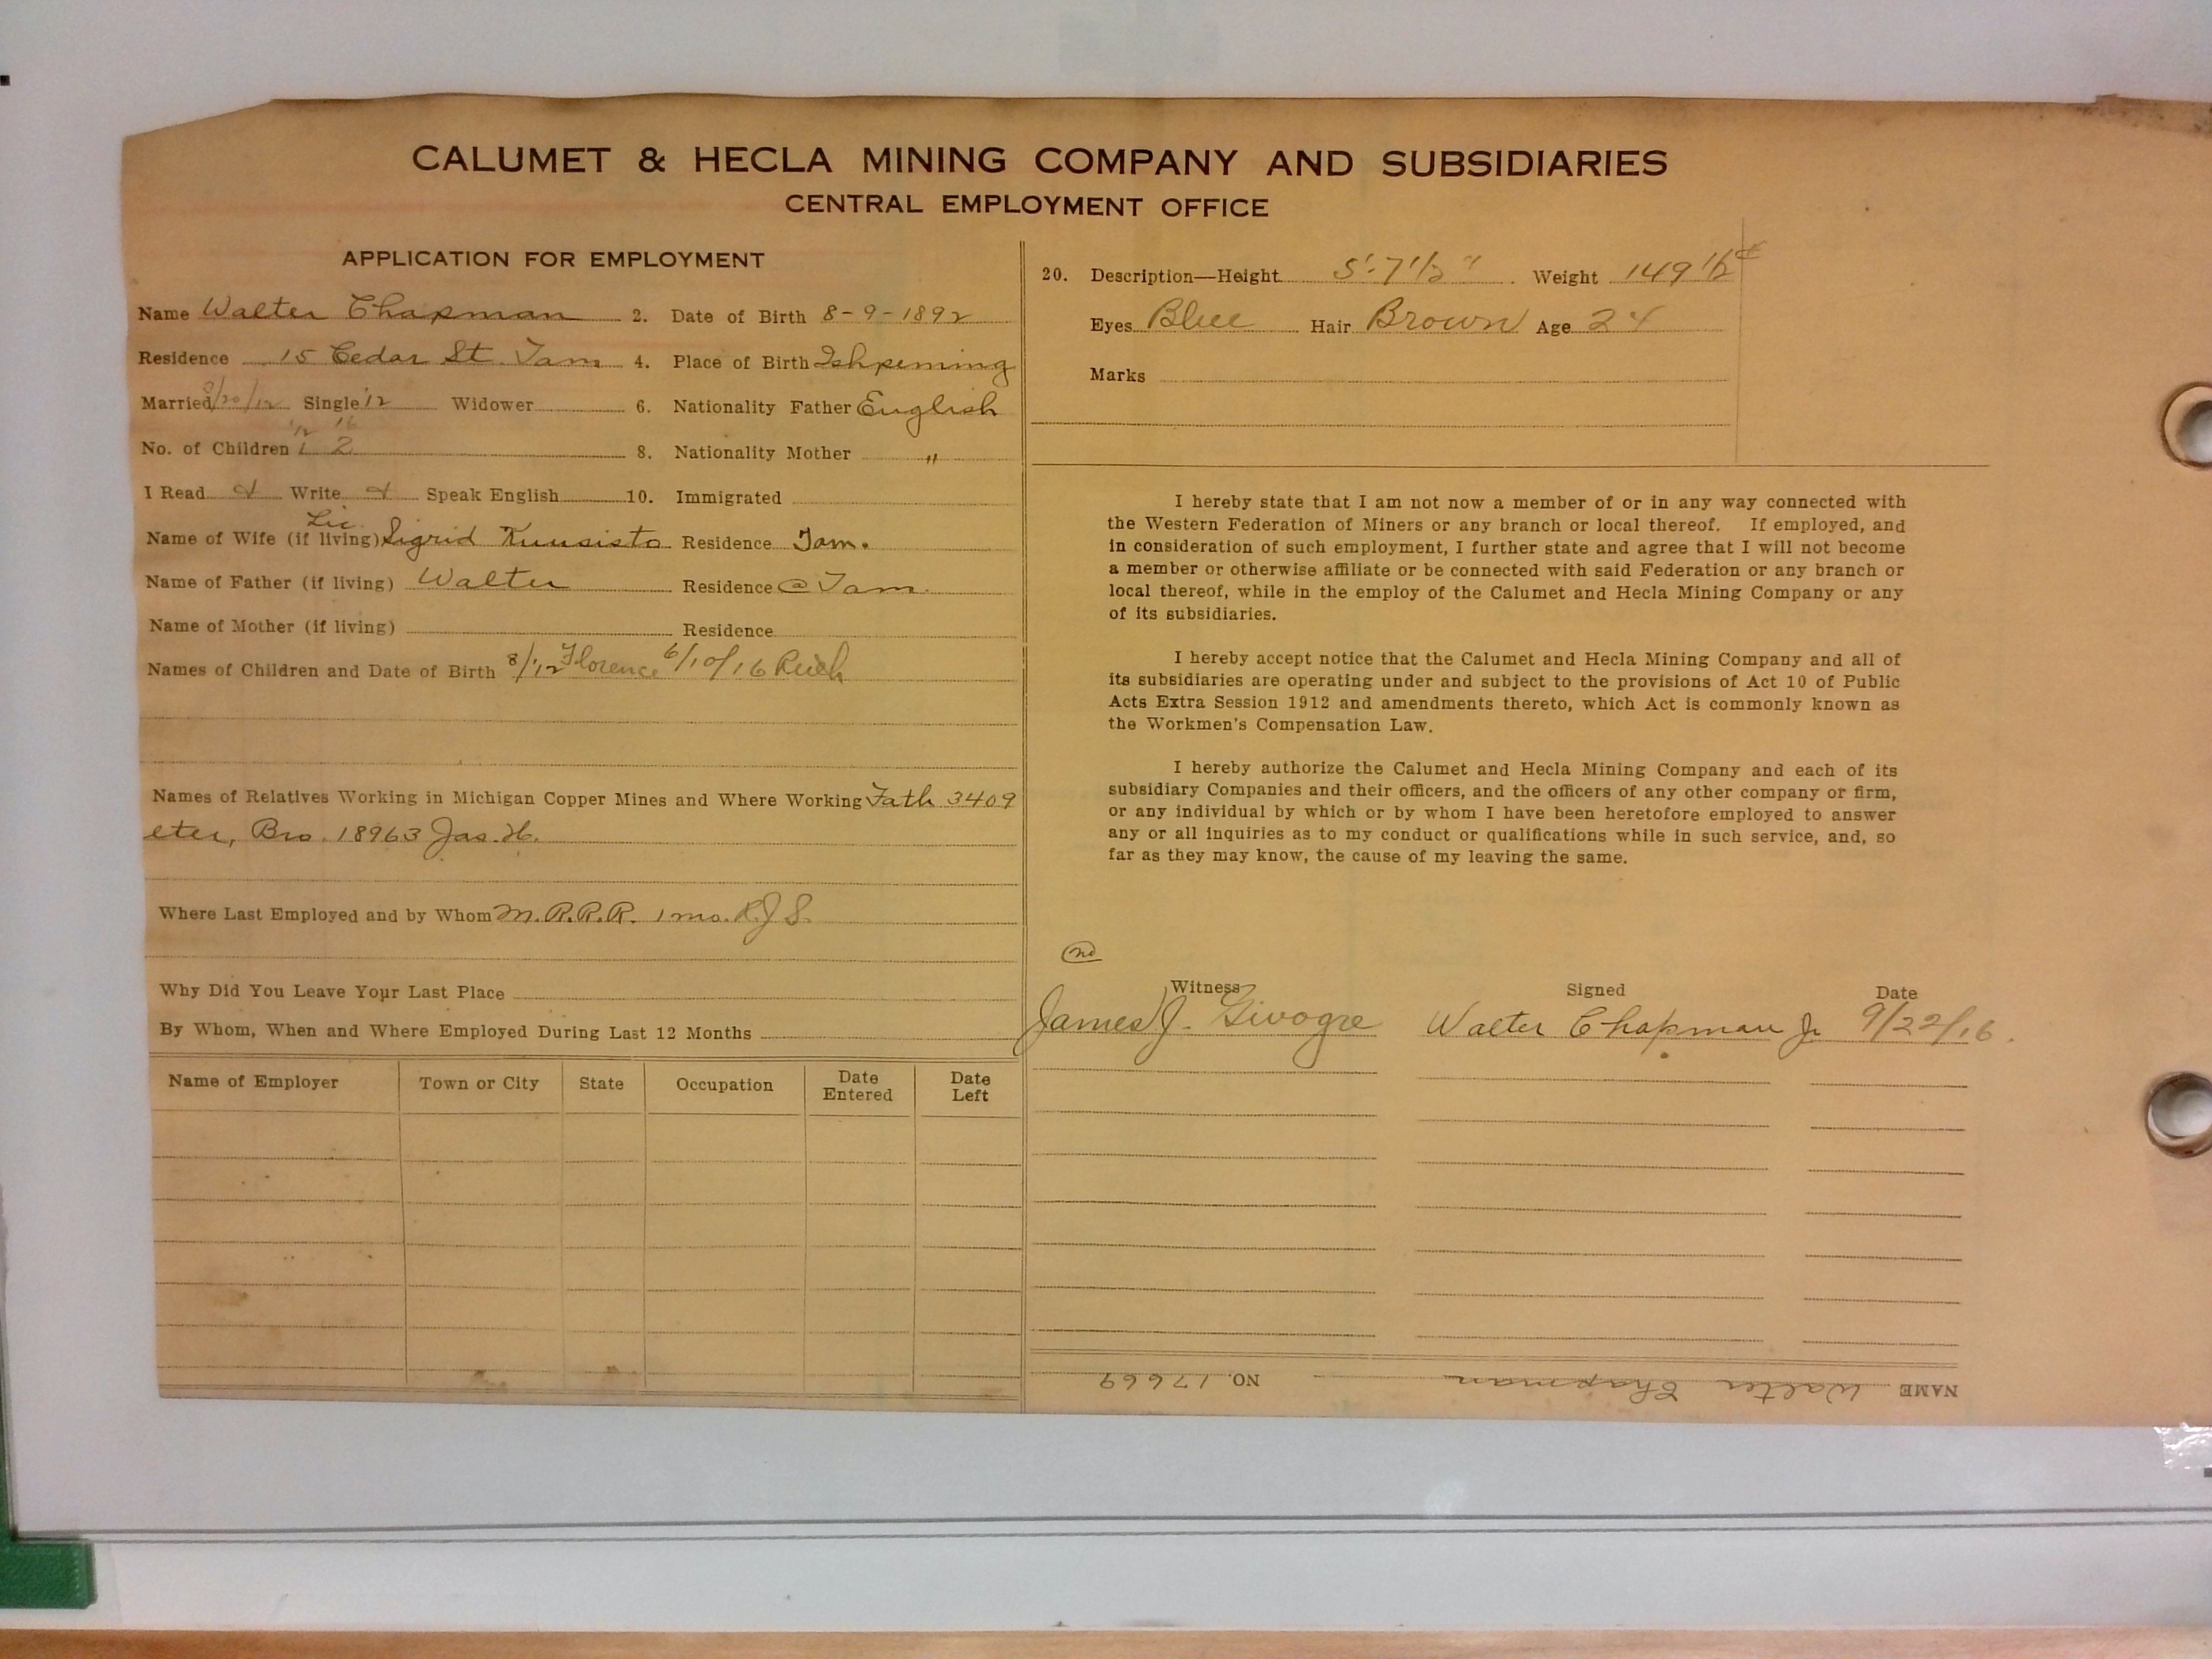 CALUMET & HECLA MINING COMPANY AND SUBSIDIARIES
CENTRAL EMPLOYMENT OFFICE
APPLICATION FOR EMPLOYMENT
Name Walter Chapman 2. Date of Birth 8-9-1892
Residence 15 Cedar St Tam 4. Place of Birth Ishpeming
Married 8/20/12 Single 12 Widower 6. Nationality Father English
'12 16
No. of Children 1 2 8. Nationality Mother "
I Read Write Speak English 10. Immigrated
Lic.
Name of Wife (if living) Sigrid Kuusisto Residence Tam.
Name of Father (if living) Walter Residence @ Tam.
Name of Mother (if living) Residence
Names of Children and Date of Birth 8/'12 Florence 6/10/16
Names of Relatives Working in Michigan Copper Mines and Where Working Fath 3409
eter, Bro. 18963 Jas. H.
Where Last Employed and by Whom M.R.R.R. 1 mo. R.J.S.
Why Did You Leave Your Last Place
By Whom, When and Where Employed During Last 12 Months
Name of Employer Town or City State Occupation Date Entered Date Left
20. Description—Height 5'-7 1/2" Weight 149 1/2
Eyes Blue Hair Brown Age 24
Marks
I hereby state that I am not now a member of or in any way connected with
the Western Federation of Miners or any branch or local thereof. If employed, and
in consideration of such employment, I further state and agree that I will not become
a member or otherwise affiliate or be connected with said Federation or any branch or
local thereof, while in the employ of the Calumet and Hecla Mining Company or any
of its subsidiaries.
I hereby accept notice that the Calumet and Hecla Mining Company and all of
its subsidiaries are operating under and subject to the provisions of Act 10 of Public
Acts Extra Session 1912 and amendments thereto, which Act is commonly known as
the Workmen's Compensation Law.
I hereby authorize the Calumet and Hecla Mining Company and each of its
subsidiary Companies and their officers, and the officers of any other company or firm,
or any individual by which or by whom I have been heretofore employed to answer
any or all inquiries as to my conduct or qualifications while in such service, and, so
far as they may know, the cause of my leaving the same.
Witness Signed Date
James J. Givogre Walter Chapman Jr 9/22/16.
NAME Walter Chapman NO. 17669